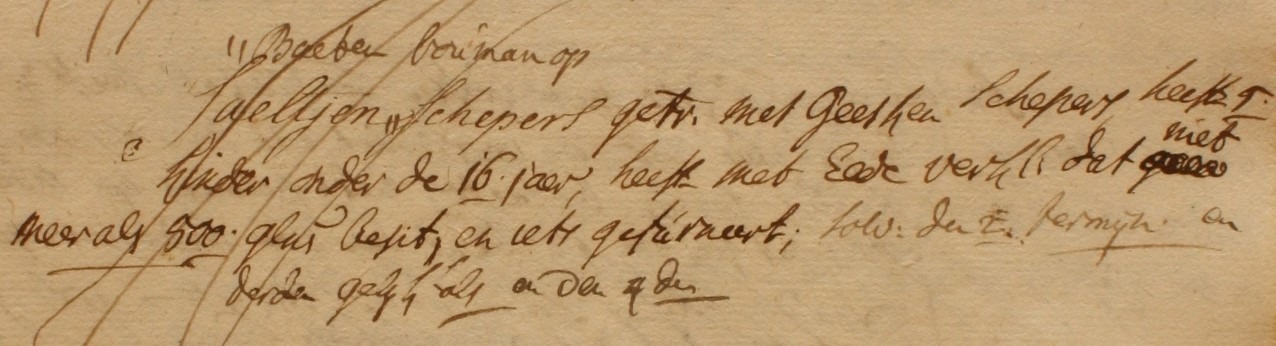 "Baeben bouman op
Saeltjen „ Schepers getr. met Geesken Schepers heeft 9.
kinder onder de 16. jaer, heeft met Eede verkl. dat niet
meer als 500. glns besit, en iets gefurneert; solv. den 2. termijn. en
derden gelijk als en den 4 den